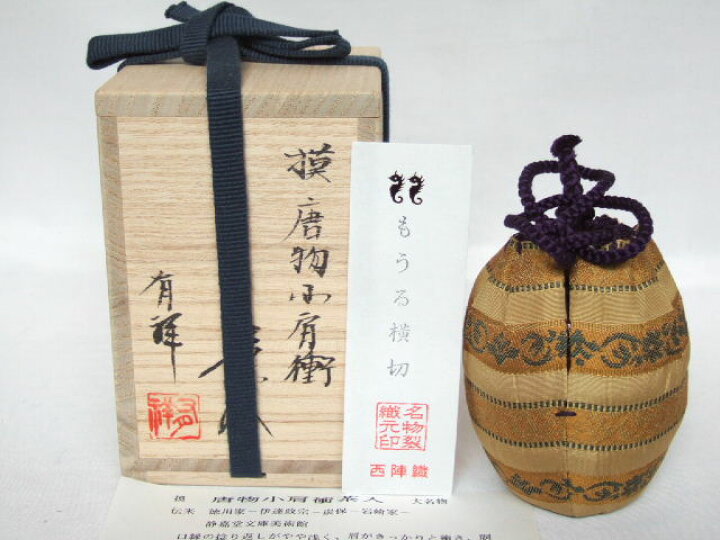 摸唐物小肩衝
有祥
もうる横切
名物裂
織元印
西陣織
摸 唐物小肩衝茶入 大名物
伝来 徳川家-伊達政宗-
-岩崎家-
静嘉堂文庫美術館
口縁の捻り返しがやや浅く、肩がきっかりと衝き、胴